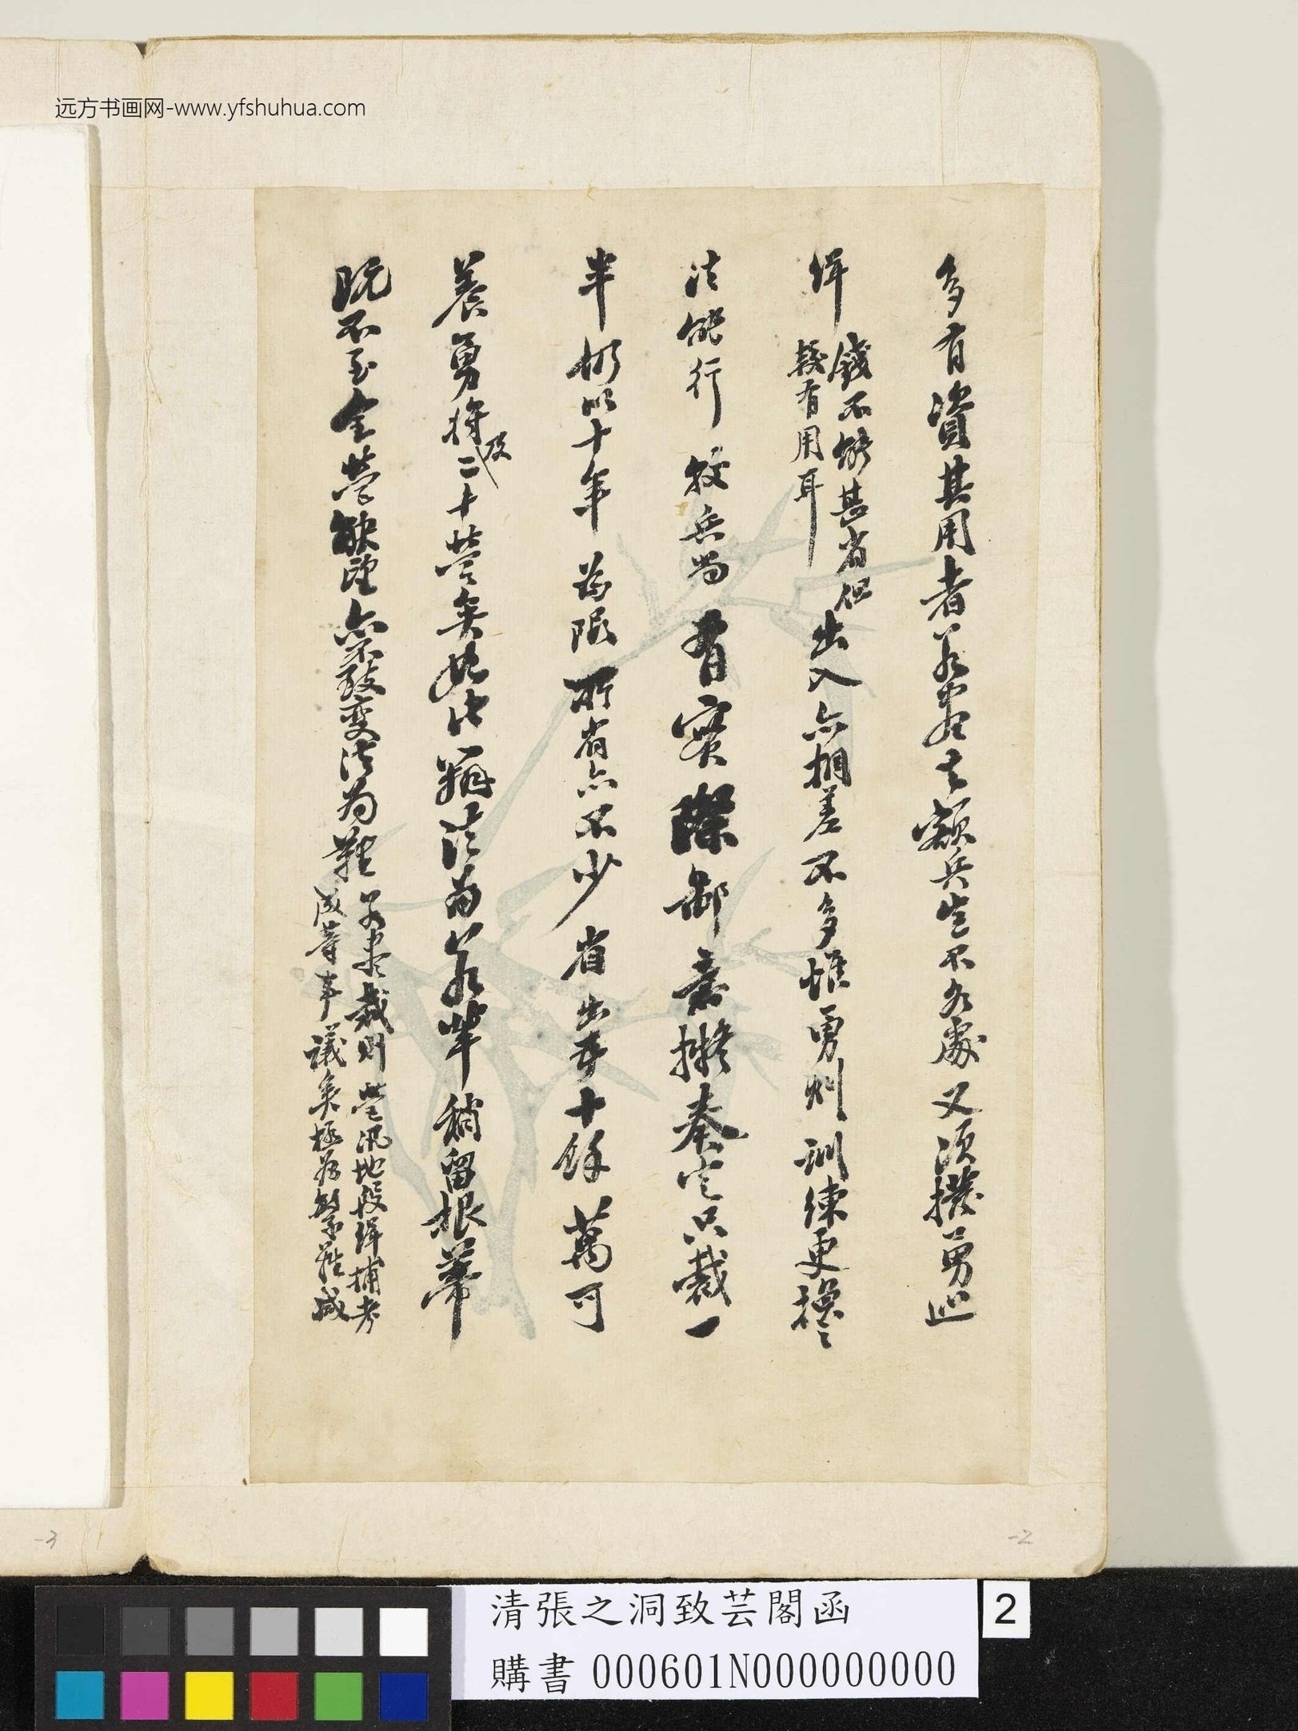 远方书画网-www.yfshuhua.com
多有資其用者若盡去額兵豈不各處又須撥勇巡
緝 錢不能甚省但
較有用耳 出入亦相差不多惟勇則訓練更換之
法能行 較兵為有實際鄙意擬奏定只裁一
半仍以十年為限所省亦不少省出五十餘萬可
養勇將及二十營矣如此辦法者若輩稍留根蒂
既不至全營缺望亦不致變法為難 若盡裁則營汛地段緝捕考
成等事議奏極為繁難
清張之洞致芸閣函
購書 000601N000000000
2
-3
-2